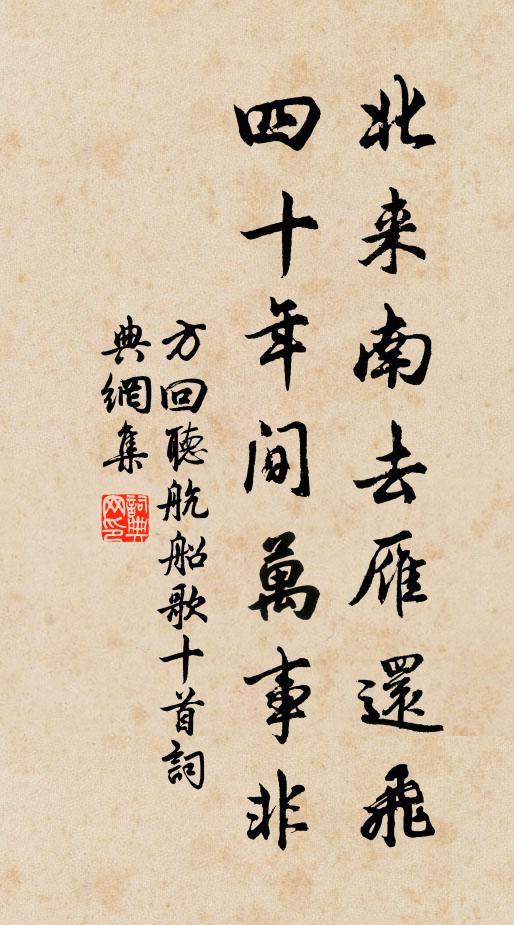 北来南去雁還飛
四十年间萬事非
方回聽航船歌十首詞
典網集
詞典网印